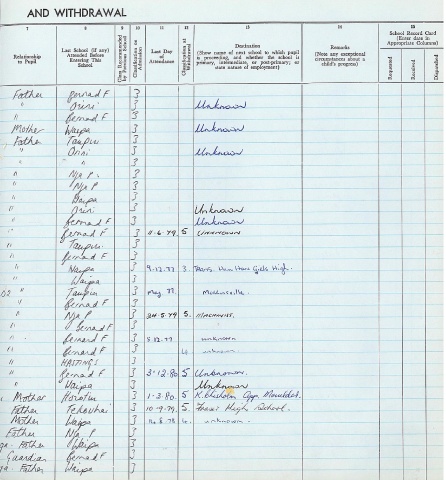 AND WITHDRAWAL
7 8 9 10 11 12 13 14 15
Relationship to Pupil
Last School (if any) Attended Before Entering This School
Classification on Admission
Last Day of Attendance
Classification at Withdrawal
Destination
(Show name of next school to which pupil is proceeding, and whether the school is primary, intermediate, or post-primary; or state nature of employment)
Remarks
(Note any exceptional circumstances about a child's progress)
School Record Card
(Enter date in Appropriate Columns)
Requested
Received
Dispatched
Father Bernard F 3
" Orini 3 Unknown
" Bernad F 3
Mother Waipa 3 Unknown
Father Taupiri 3
" Orini 3 Unknown
" " 3
" Nga P. 3
" Nga P 3
" Waipa 3
" Orini 3 Unknown
" Bernad F 3 Unknown
" Bernad F 3 11.6.79 5 UNKNOWN
" Taupiri 3
" Bernad F 3
" Waipa 3 9.12.77 3 Girls High.
" Waipa 3
" Taupiri 3 May 78
" Bernad F 3
" Nga P 3 24.5.79 5. MACHINIST.
" Bernad F 3
" Bernard F 3 5.12.77 unknown
" Bernard F 3 4 unknown
" HASTINGS 3
" Bernad F 3 3.12.80 5 Unknown.
" Waipa 3 Unknown
Mother Horotiu 3 1.3.80. 5 K. Chisholm App. Moulder.
Father Tekauhai 3 10.9.79. 5 High School.
Mother Waipa 3 unknown.
Father Nga P 3
Father Waipa 3
Guardian Bernad F 3
Father Waipa 3